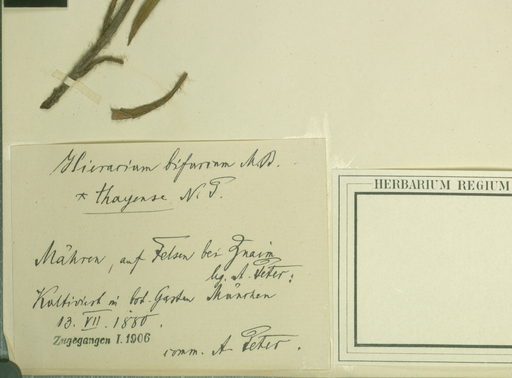 Hieracium bifurcum M.B.
* thayense N. P.
Mähren, auf Felsen bei Znaim
lg. A. Peter:
Kultiviert in bot. Garten München
13. VII. 1880.
Zugegangen I. 1906
comm. A. Peter.
HERBARIUM REGIUM